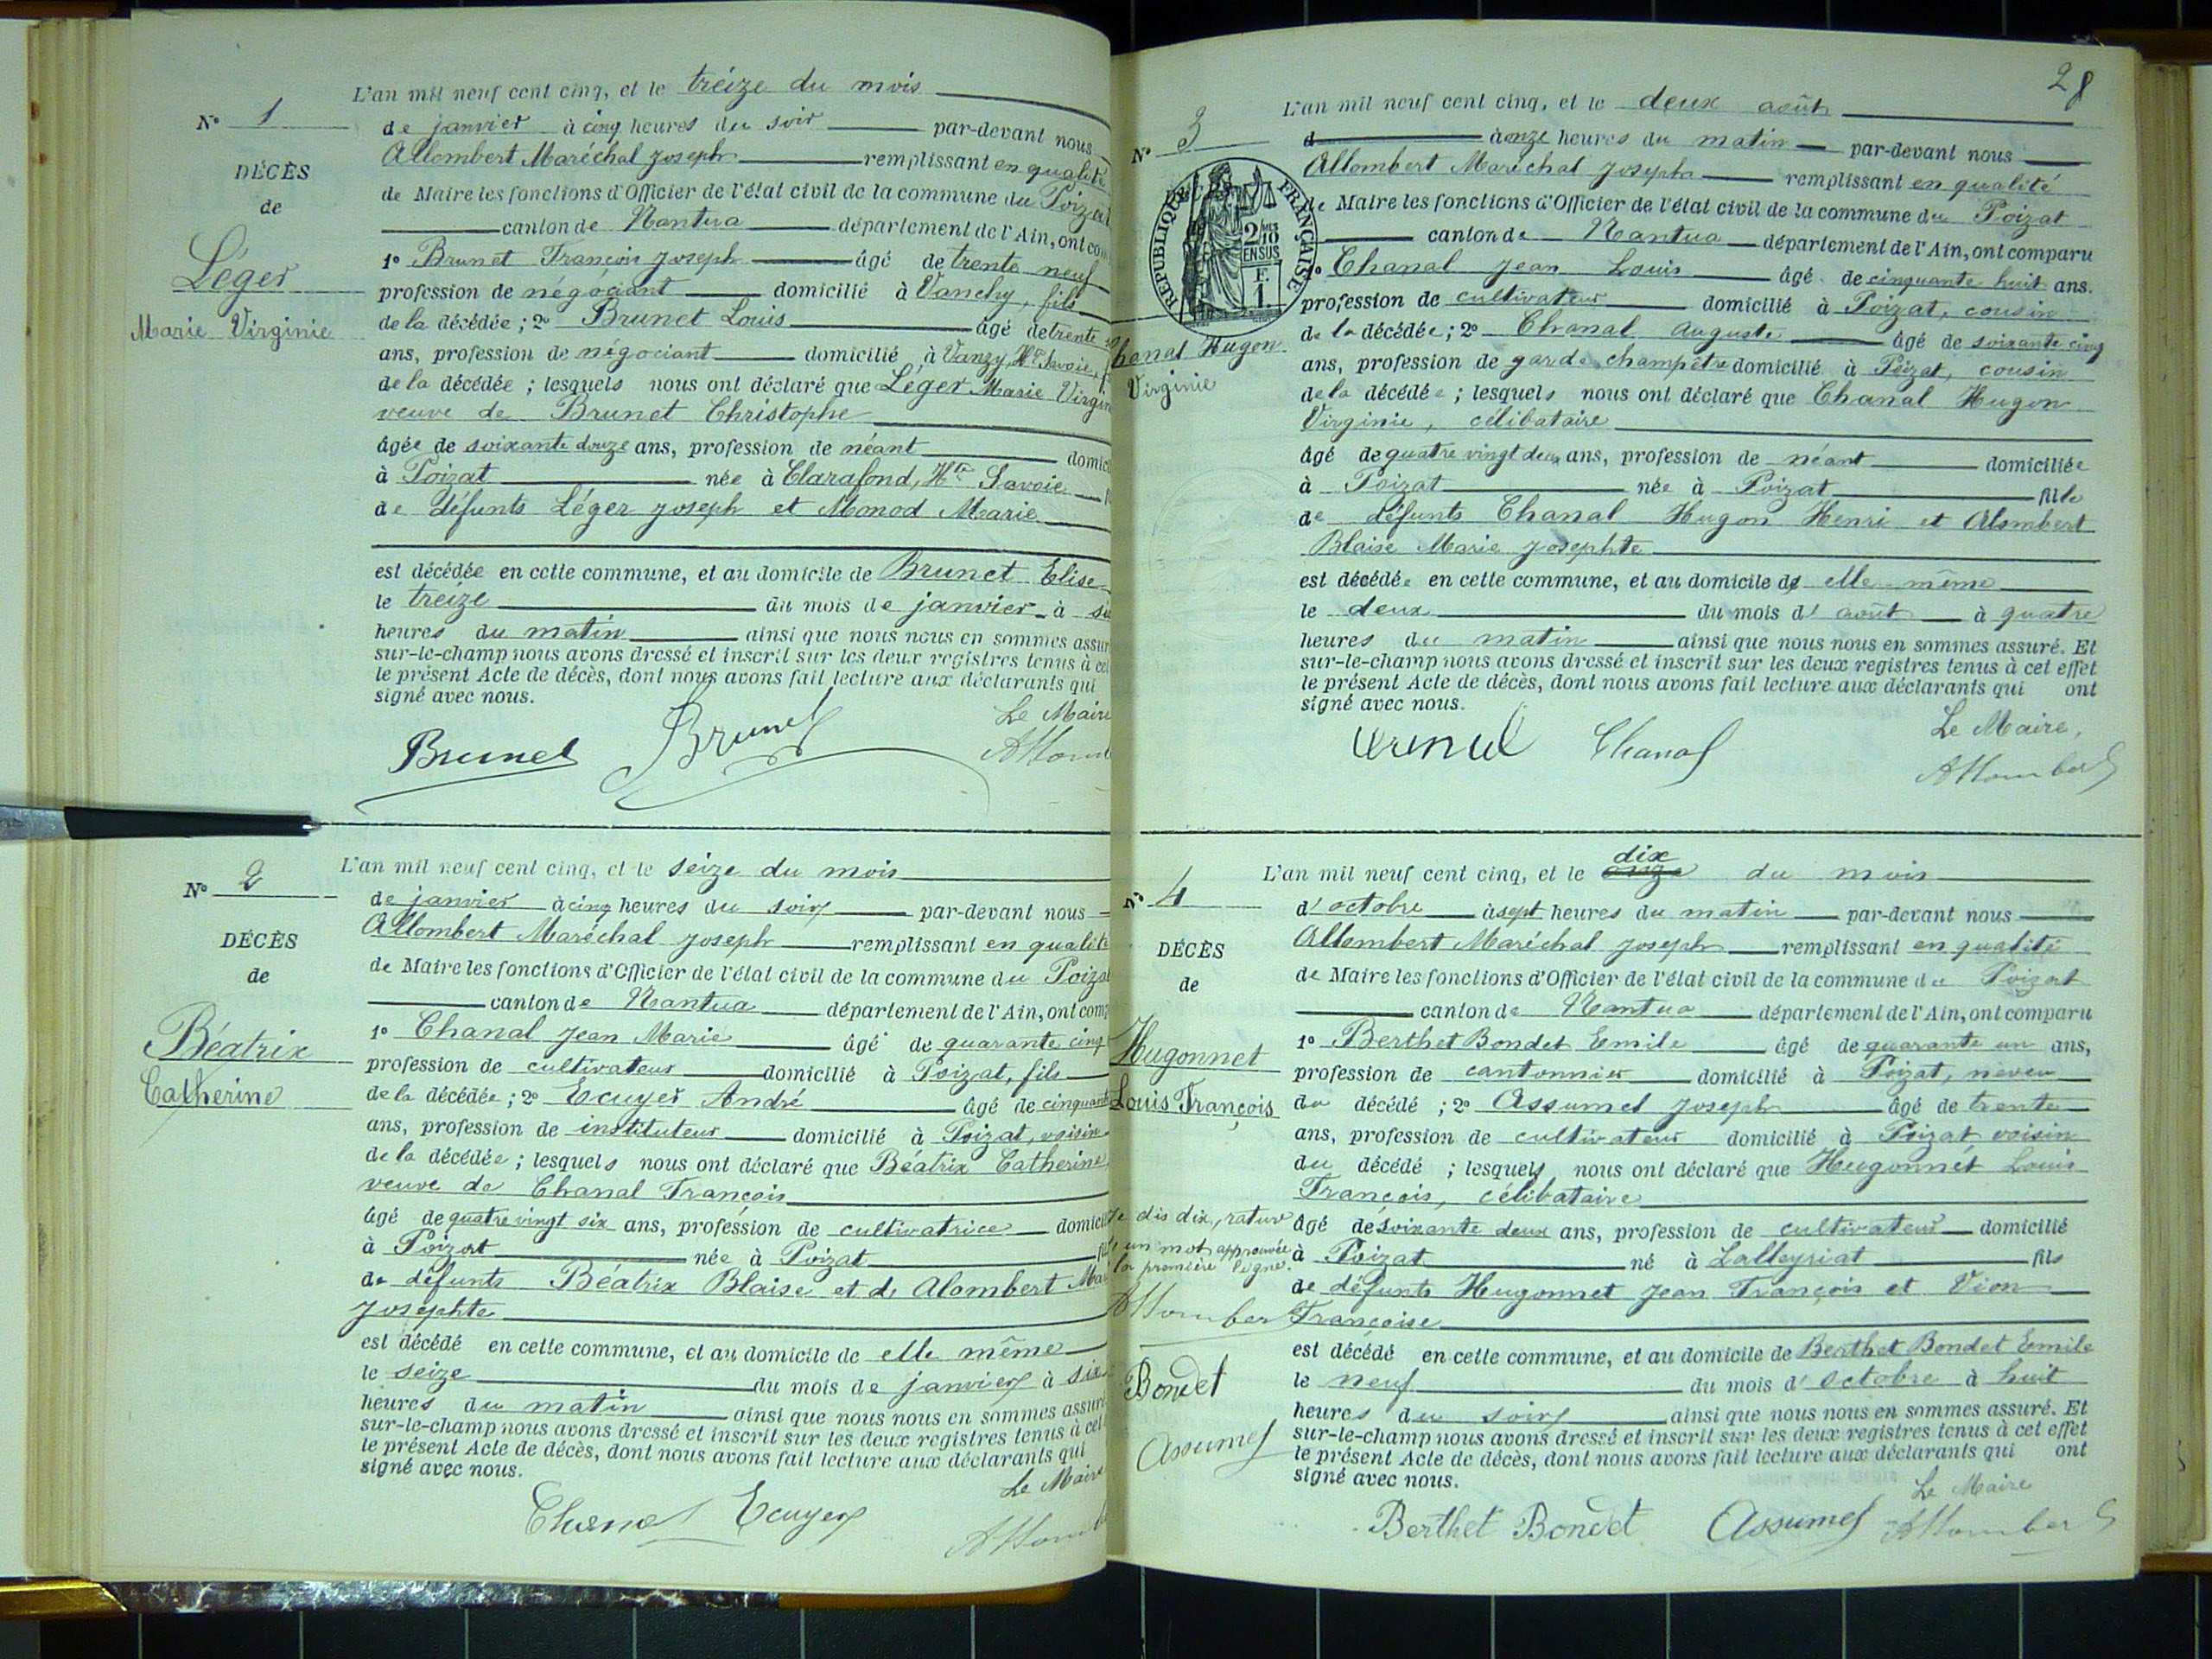 L'an mil neuf cent cinq, et le treize du mois
N° 1
de janvier à cinq heures du soir par-devant nous
Allombert Maréchal Joseph remplissant en qualité
DÉCÈS
de Maire les fonctions d'Officier de l'état civil de la commune du Poizat
de
canton de Nantua département de l'Ain, ont com
Léger
1° Brunet François Joseph âgé de trente neuf
profession de négociant domicilié à Vanchy, fils
Marie Virginie
de la décédée ; 2° Brunet Louis âgé de trente
ans, profession de négociant domicilié à Vanzy, Hte Savoie,
de la décédée ; lesquels nous ont déclaré que Léger Marie Virgin
veuve de Brunet Christophe
âgée de soixante douze ans, profession de néant domici
à Poizat née à Clarafond, Hte Savoie
de défunts Léger Joseph et Monod Marie
est décédée en cette commune, et au domicile de Brunet Elise
le treize du mois de janvier à
heures du matin ainsi que nous nous en sommes assur
sur-le-champ nous avons dressé et inscrit sur les deux registres tenus à cet
le présent Acte de décès, dont nous avons fait lecture aux déclarants qui
signé avec nous.
Le Maire
Brunet Brunet Allomb
L'an mil neuf cent cinq, et le seize du mois
N° 2
de janvier à cinq heures du soir par-devant nous
Allombert Maréchal Joseph remplissant en qualité
DÉCÈS
de Maire les fonctions d'Officier de l'état civil de la commune du Poizat
de
canton de Nantua département de l'Ain, ont comp
Béatrix
1° Chanal Jean Marie âgé de quarante cinq
profession de cultivateur domicilié à Poizat, fils
Catherine
de la décédée ; 2° Ecuyer André âgé de cinquante
ans, profession de instituteur domicilié à Poizat, voisin
de la décédée ; lesquels nous ont déclaré que Béatrix Catherine
veuve de Chanal François
âgé de quatre vingt six ans, profession de cultivatrice domicil
à Poizat née à Poizat
de défunts Béatrix Blaise et de Alombert Ma
Josephte
est décédé en cette commune, et au domicile de elle même
le seize du mois de janvier à six
heures du matin ainsi que nous nous en sommes assuré
sur-le-champ nous avons dressé et inscrit sur les deux registres tenus à cet
le présent Acte de décès, dont nous avons fait lecture aux déclarants qui
signé avec nous.
Le Maire
Chanal Ecuyer Allomb
28
L'an mil neuf cent cinq, et le deux août
N° 3
d à onze heures du matin par-devant nous
Allombert Maréchal Joseph remplissant en qualité
RÉPUBLIQUE FRANÇAISE
2/10 EN SUS
F. 1.
de Maire les fonctions d'Officier de l'état civil de la commune du Poizat
canton de Nantua département de l'Ain, ont comparu
1° Chanal Jean Louis âgé de cinquante huit ans.
profession de cultivateur domicilié à Poizat, cousin
de la décédée ; 2° Chanal Auguste âgé de soixante cinq
hanal Hugon
Virginie
ans, profession de garde champêtre domicilié à Poizat, cousin
de la décédée ; lesquels nous ont déclaré que Chanal Hugon
Virginie, célibataire
âgé de quatre vingt deux ans, profession de néant domiciliée
à Poizat née à Poizat fille
de défunts Chanal Hugon Henri et Alombert
Blaise Marie Josephte
est décédée en cette commune, et au domicile de elle même
le deux du mois d' août à quatre
heures du matin ainsi que nous nous en sommes assuré. Et
sur-le-champ nous avons dressé et inscrit sur les deux registres tenus à cet effet
le présent Acte de décès, dont nous avons fait lecture aux déclarants qui ont
signé avec nous.
Le Maire,
Chanal Allombert
dix
L'an mil neuf cent cinq, et le onze du mois
N° 4
d'octobre à sept heures du matin par-devant nous
Allombert Maréchal Joseph remplissant en qualité
DÉCÈS
de Maire les fonctions d'Officier de l'état civil de la commune du Poizat
de
canton de Nantua département de l'Ain, ont comparu
Hugonnet
1° Berthet Bondet Emile âgé de quarante un ans,
profession de cantonnier domicilié à Poizat, neveu
Louis François
du décédé ; 2° Assumel Joseph âgé de trente
ans, profession de cultivateur domicilié à Poizat voisin
du décédé ; lesquels nous ont déclaré que Hugonnet Louis
François, célibataire
Je dis dix, rature
âgé de soixante deux ans, profession de cultivateur domicilié
un mot approuvée
à Poizat né à Lalleyriat fils
la première ligne.
de défunts Hugonnet Jean François et Vion
Allombert
Françoise
est décédé en cette commune, et au domicile de Berthet Bondet Emile
Bondet
le neuf du mois d' octobre à huit
heures du soir ainsi que nous nous en sommes assuré. Et
Assumel
sur-le-champ nous avons dressé et inscrit sur les deux registres tenus à cet effet
le présent Acte de décès, dont nous avons fait lecture aux déclarants qui ont
signé avec nous.
Le Maire
Berthet Bondet Assumel Allombert